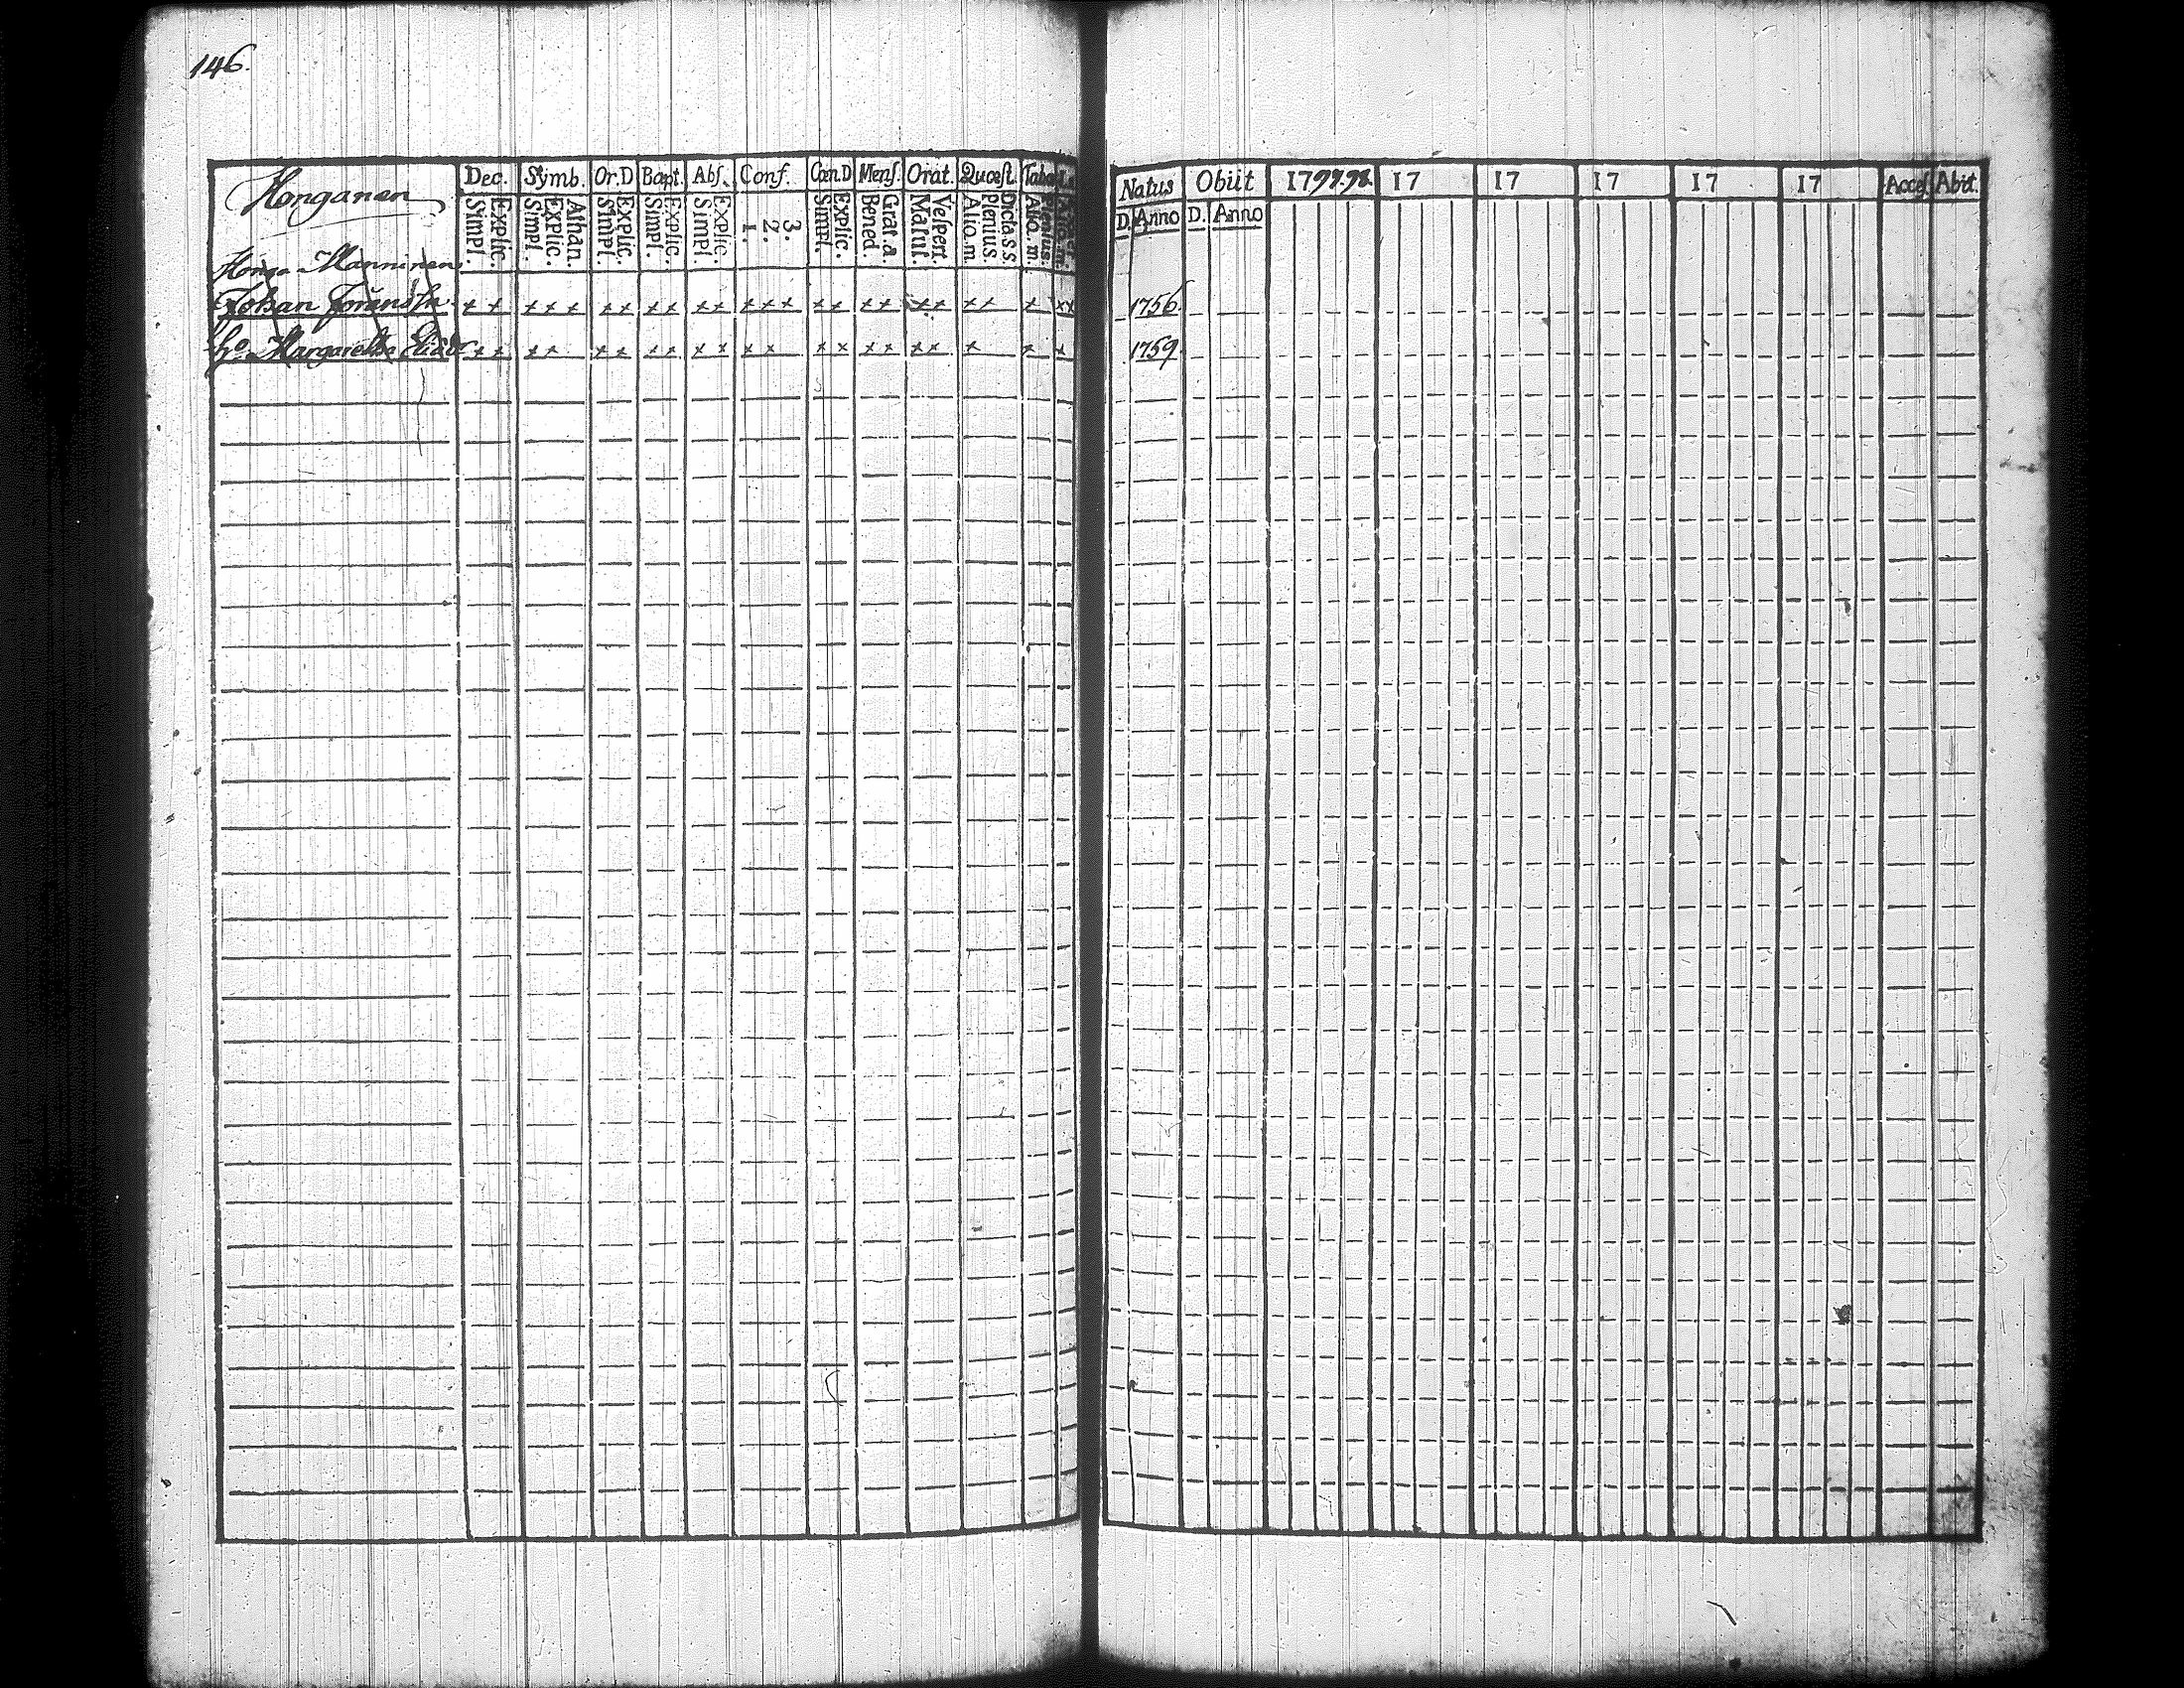 146.
Honganen
Dec. Symb. Or.D Bapt. Abs. Conf. Cœn.D Mens. Orat. Quæst. Taba
Simpl. Explic. Simpl. Explic. Athan. Simpl. Explic. Simpl. Explic. Simpl Explic. 1. 2. 3. Simpl. Explic. Bened. Grat. a Matut. Vespert. Aliq. m. Plenius. Dicta S.S Aliq. m. Plenius.
Natus Obiit 1797.98. 17 17 17 17 17 Acces. Abit.
D. Anno D. Anno
Honga Manninen
Johan Joransson x x x x x x x x x x x x x x x x x x x x x x x x x 1756.
ho Margaretha x x x x x x x x x x x x x x x x x x x x x 1759.